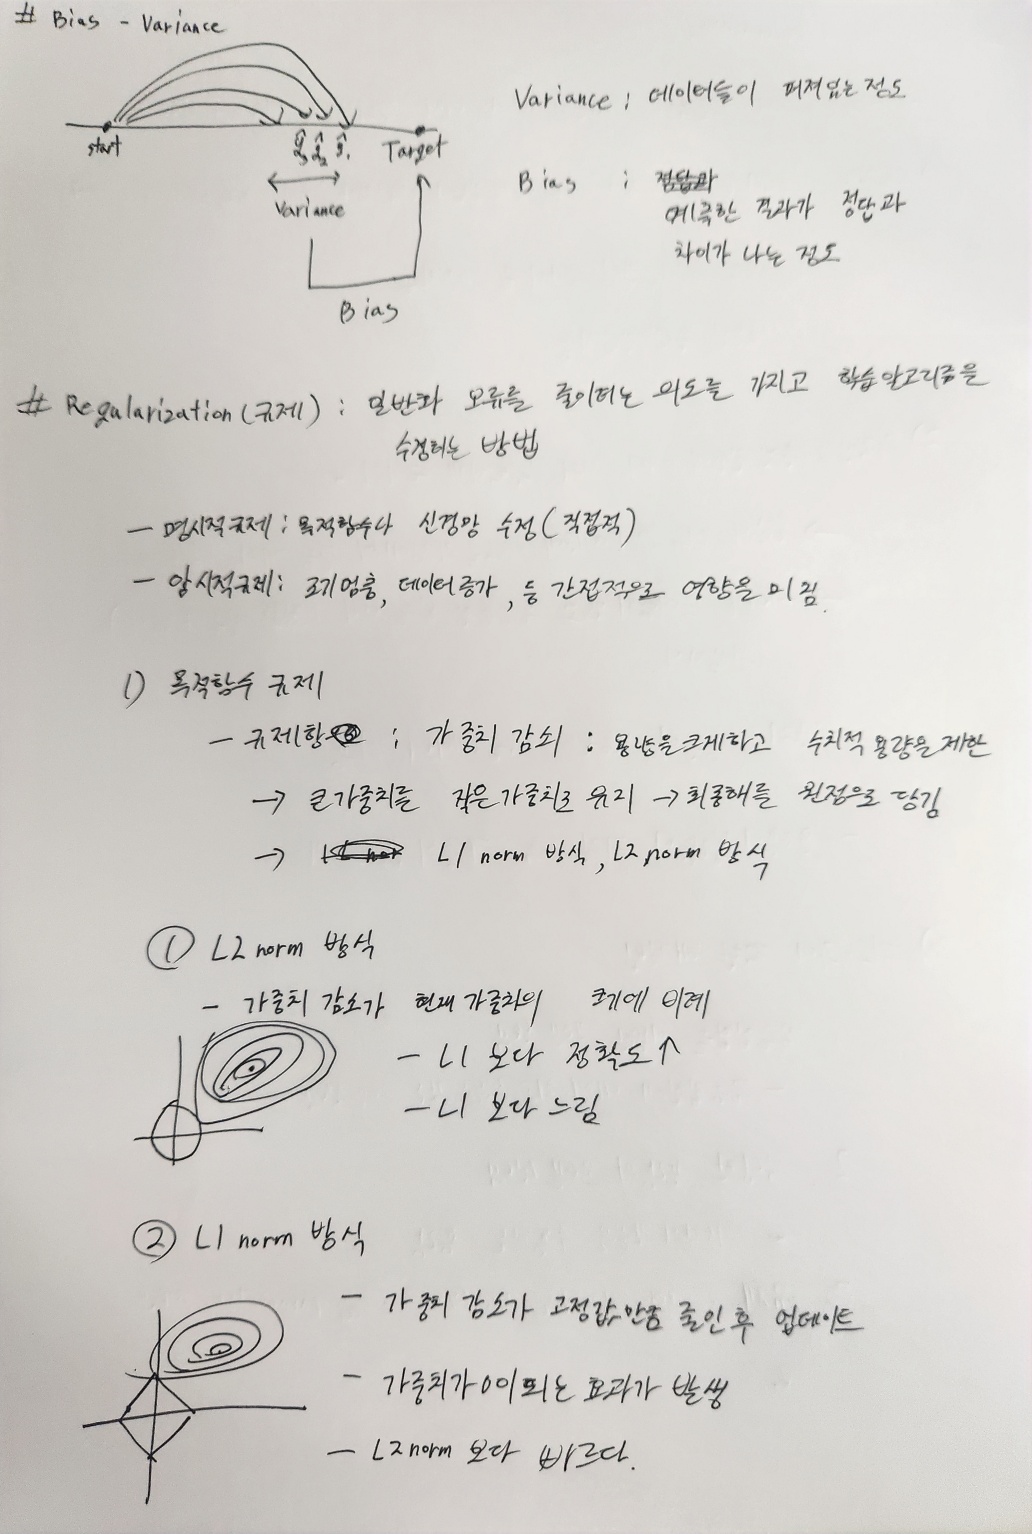 # Bias - Variance
Variance : 데이터들이 퍼져있는 정도
start
ŷ₃ ŷ₂ ŷ₁
Target
Variance
Bias
Bias : 정답과
예측한 결과가 정답과
차이가 나는 정도
# Regularization (규제) : 일반화 오류를 줄이려는 의도를 가지고 학습알고리즘을
수정하는 방법
- 명시적규제 : 목적함수나 신경망 수정 (직접적)
- 암시적규제 : 조기멈춤, 데이터증가, 등 간접적으로 영향을 미침.
1) 목적함수 규제
- 규제항 : 가중치 감쇠 : 용량을 크게하고 수치적 용량을 제한
→ 큰가중치를 작은가중치로 유지 → 최종해를 원점으로 당김
→ L1 norm 방식, L2 norm 방식
① L2 norm 방식
- 가중치 감소가 현재 가중치의 크기에 비례
- L1 보다 정확도↑
- L1 보다 느림
② L1 norm 방식
- 가중치 감소가 고정값만큼 줄인 후 업데이트
- 가중치가 0이 되는 효과가 발생
- L2 norm 보다 빠르다.